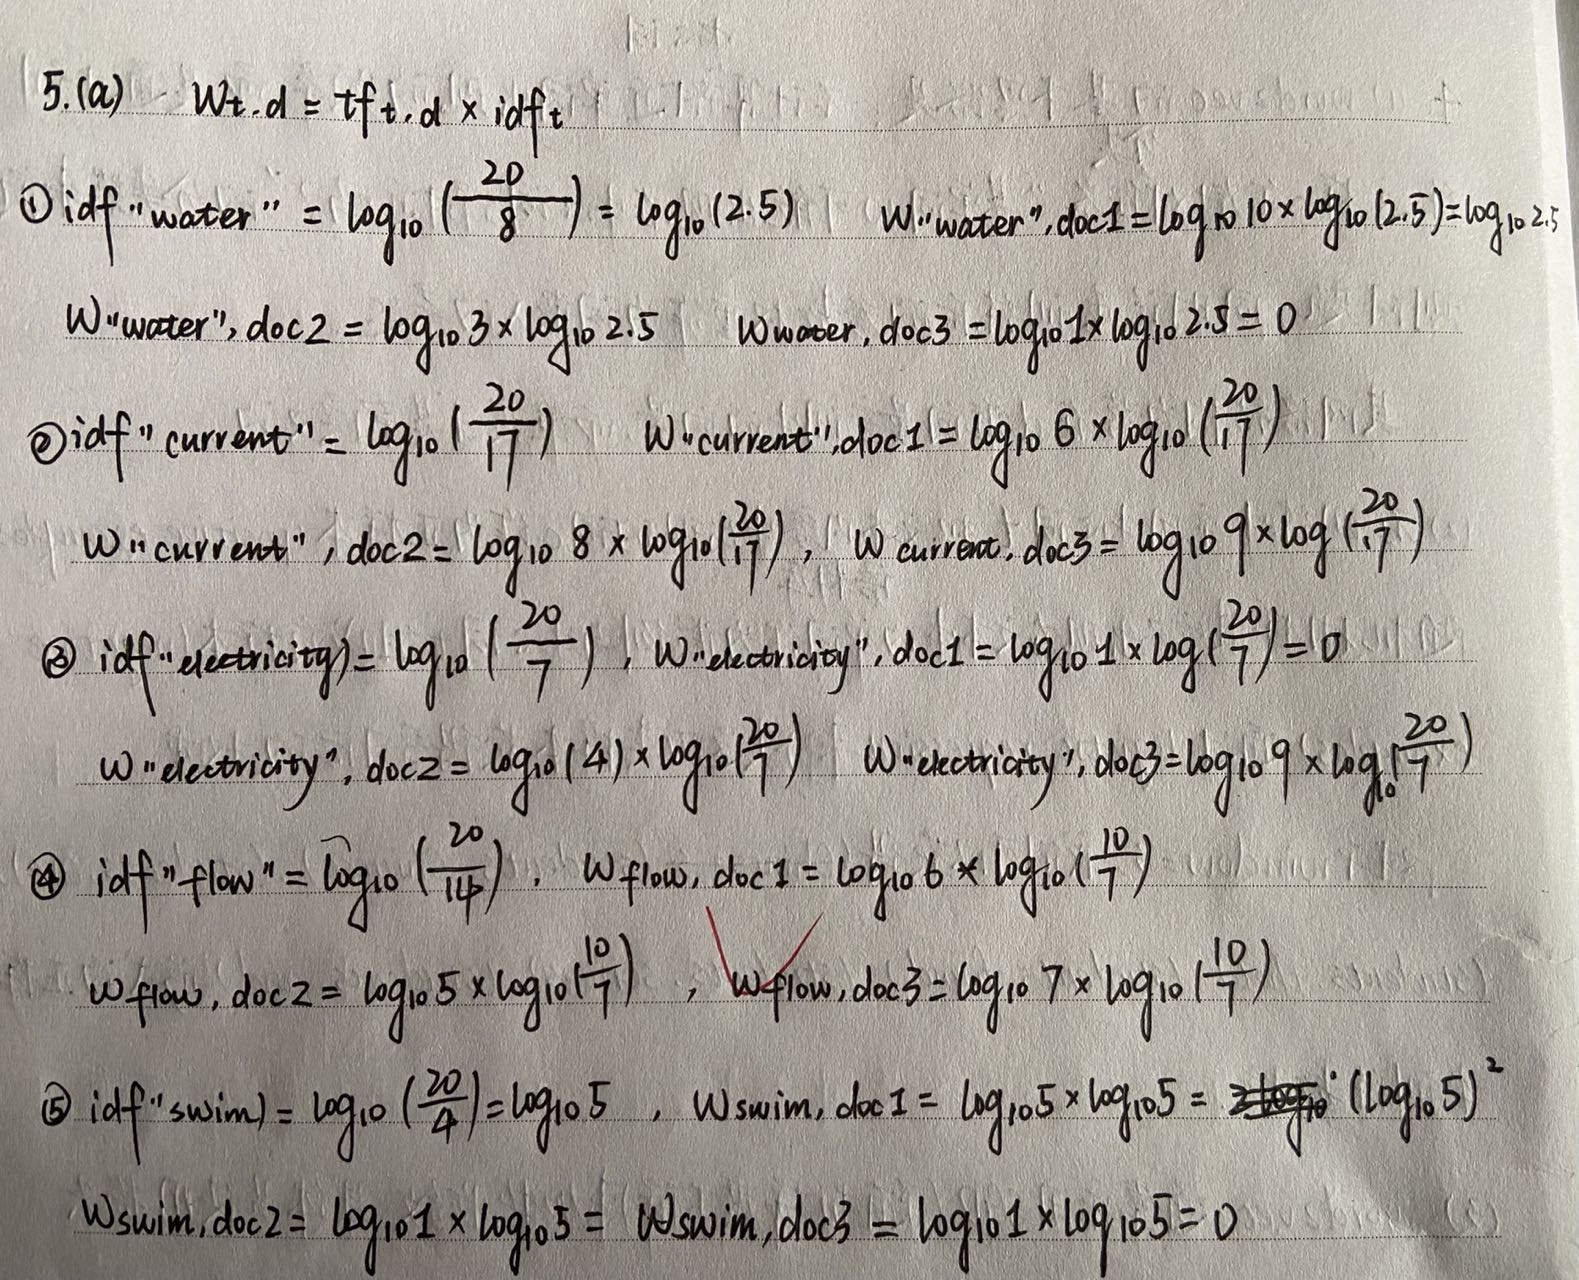 5.(a) Wt.d = tft.d × idft
① idf "water" = log10 (20/8) = log10 (2.5) W"water", doc1 = log10 10 × log10 (2.5) = log10 2.5
W"water", doc2 = log10 3 × log10 2.5 Wwater, doc3 = log10 1 × log10 2.5 = 0
② idf "current" = log10 (20/17) W"current", doc1 = log10 6 × log10 (20/17)
W"current", doc2 = log10 8 × log10 (20/17), W current, doc3 = log10 9 × log (20/17)
③ idf "electricity) = log10 (20/7), W"electricity", doc1 = log10 1 × log (20/7) = 0
W"electricity", doc2 = log10 (4) × log10 (20/7) W"electricity", doc3 = log10 9 × log10 (20/7)
④ idf "flow" = log10 (20/14), Wflow, doc1 = log10 6 × log10 (10/7)
Wflow, doc2 = log10 5 × log10 (10/7), Wflow, doc3 = log10 7 × log10 (10/7)
⑤ idf "swim) = log10 (20/4) = log10 5, Wswim, doc1 = log10 5 × log10 5 = (log10 5)²
Wswim, doc2 = log10 1 × log10 5 = Wswim, doc3 = log10 1 × log10 5 = 0